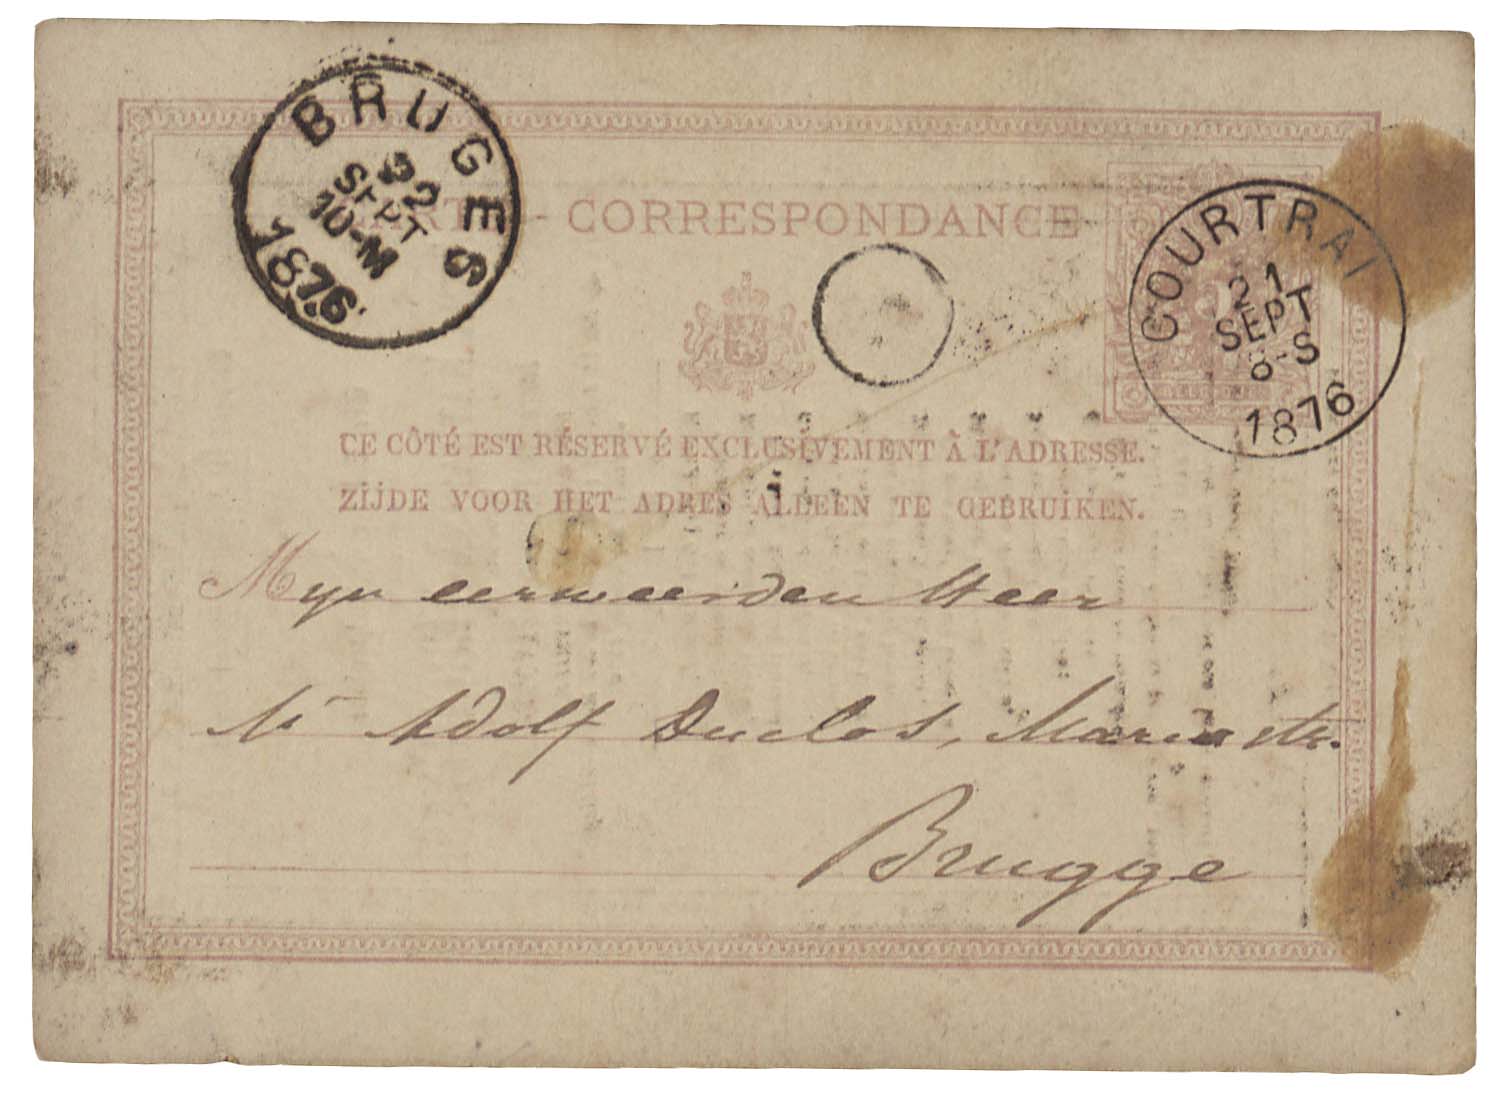 BRUGES
22
SEPT
10-M
1876
CARTE-CORRESPONDANCE
COURTRAI
21
SEPT
8-S
1876
CE CÔTÉ EST RÉSERVÉ EXCLUSIVEMENT À L'ADRESSE.
ZIJDE VOOR HET ADRES ALLEEN TE GEBRUIKEN.
Myn eerweerden Heer
Mr Adolf Duclos, Mariastr.
Brugge